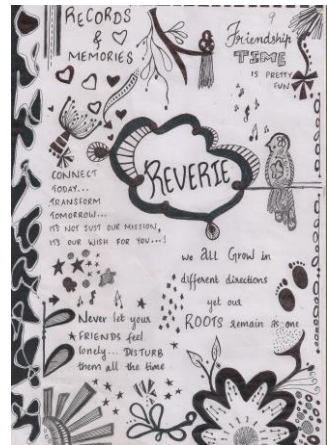 RECORDS
&
MEMORIES
9
Friendship
TIME
IS PRETTY
FUN
REVERIE
CONNECT
TODAY...
TRANSFORM
TOMORROW...
IT'S NOT JUST OUR MISSION,
IT'S OUR WISH FOR YOU...!
we all Grow in
different directions
yet our
ROOTS remain as one
Never let your
FRIENDS feel
lonely... DISTURB
them all the time